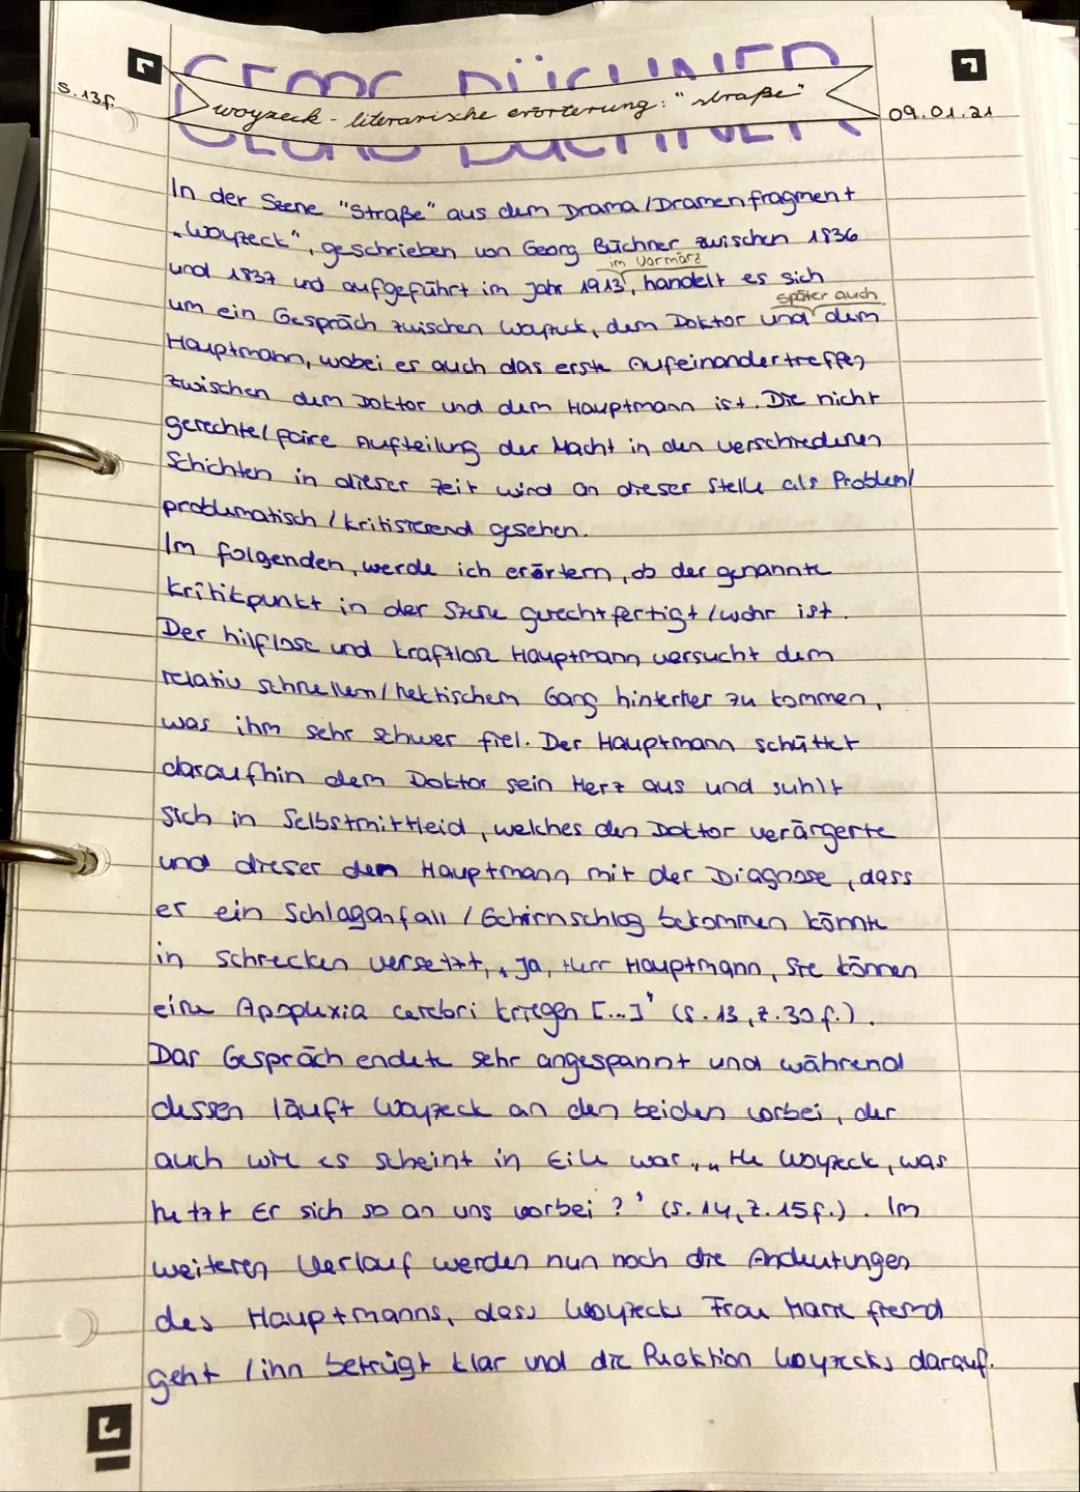 GEORG BÜCHNER
S. 13f.
woyzeck - literarische erörterung: "straße"
09.01.21
GEORG BÜCHNER
In der Szene "Straße" aus dem Drama / Dramenfragment
„Woyzeck", geschrieben von Georg Büchner zwischen 1836
im Vormärz
und 1837 und aufgeführt im Jahr 1913, handelt es sich
später auch
um ein Gespräch zwischen Woyzeck, dem Doktor und dem
Hauptmann, wobei es auch das erste Aufeinandertreffen
zwischen dem Doktor und dem Hauptmann ist. Die nicht
gerechte / faire Aufteilung der Macht in den verschiedenen
Schichten in dieser Zeit wird an dieser Stelle als Problem/
problematisch / kritisierend gesehen.
Im folgenden, werde ich erörtern, ob der genannte
Kritikpunkt in der Szene gerechtfertigt / wahr ist.
Der hilflose und kraftlose Hauptmann versucht dem
relativ schnellem / hektischem Gang hinterher zu kommen,
was ihm sehr schwer fiel. Der Hauptmann schüttet
daraufhin dem Doktor sein Herz aus und suhlt
sich in Selbstmittleid, welches den Doktor verärgerte
und dieser den Hauptmann mit der Diagnose, dass
er ein Schlaganfall / Gehirnschlag bekommen könnte
in Schrecken versetzt, „Ja, Herr Hauptmann, Sie können
eine Apoplexia cerebri kriegen [...]' (S. 13, Z. 30 f.).
Das Gespräch endete sehr angespannt und während
dessen läuft Woyzeck an den beiden vorbei, der
auch wie es scheint in Eile war, „He Woyzeck, was
hetzt Er sich so an uns vorbei ?' (S. 14, Z. 15f.). Im
weiteren Verlauf werden nun noch die Andeutungen
des Hauptmanns, dass Woyzecks Frau Marie fremd
geht / ihn betrügt klar und die Reaktion Woyzecks darauf.